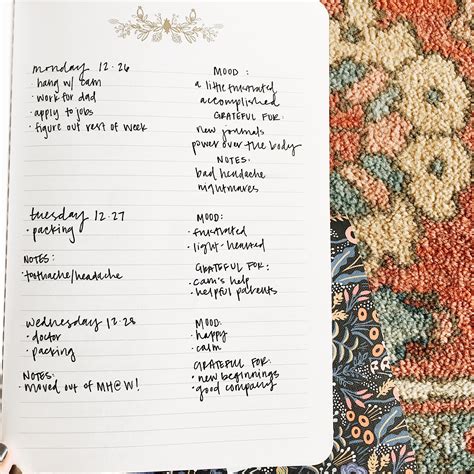 monday 12.26
· hang w/ cam
· work for dad
· apply to jobs
· figure out rest of week
MOOD:
a little frustrated
accomplished
GRATEFUL FOR:
new journals
power over the body
NOTES:
bad headache
nightmares
tuesday 12.27
· packing
NOTES:
· toothache/headache
MOOD:
· frustrated
· light-hearted
GRATEFUL FOR:
· cam's help
· helpful parents
wednesday 12.28
· doctor
· packing
NOTES:
· moved out of MH@W!
MOOD:
· happy
· calm
GRATEFUL FOR:
· new beginnings
· good company